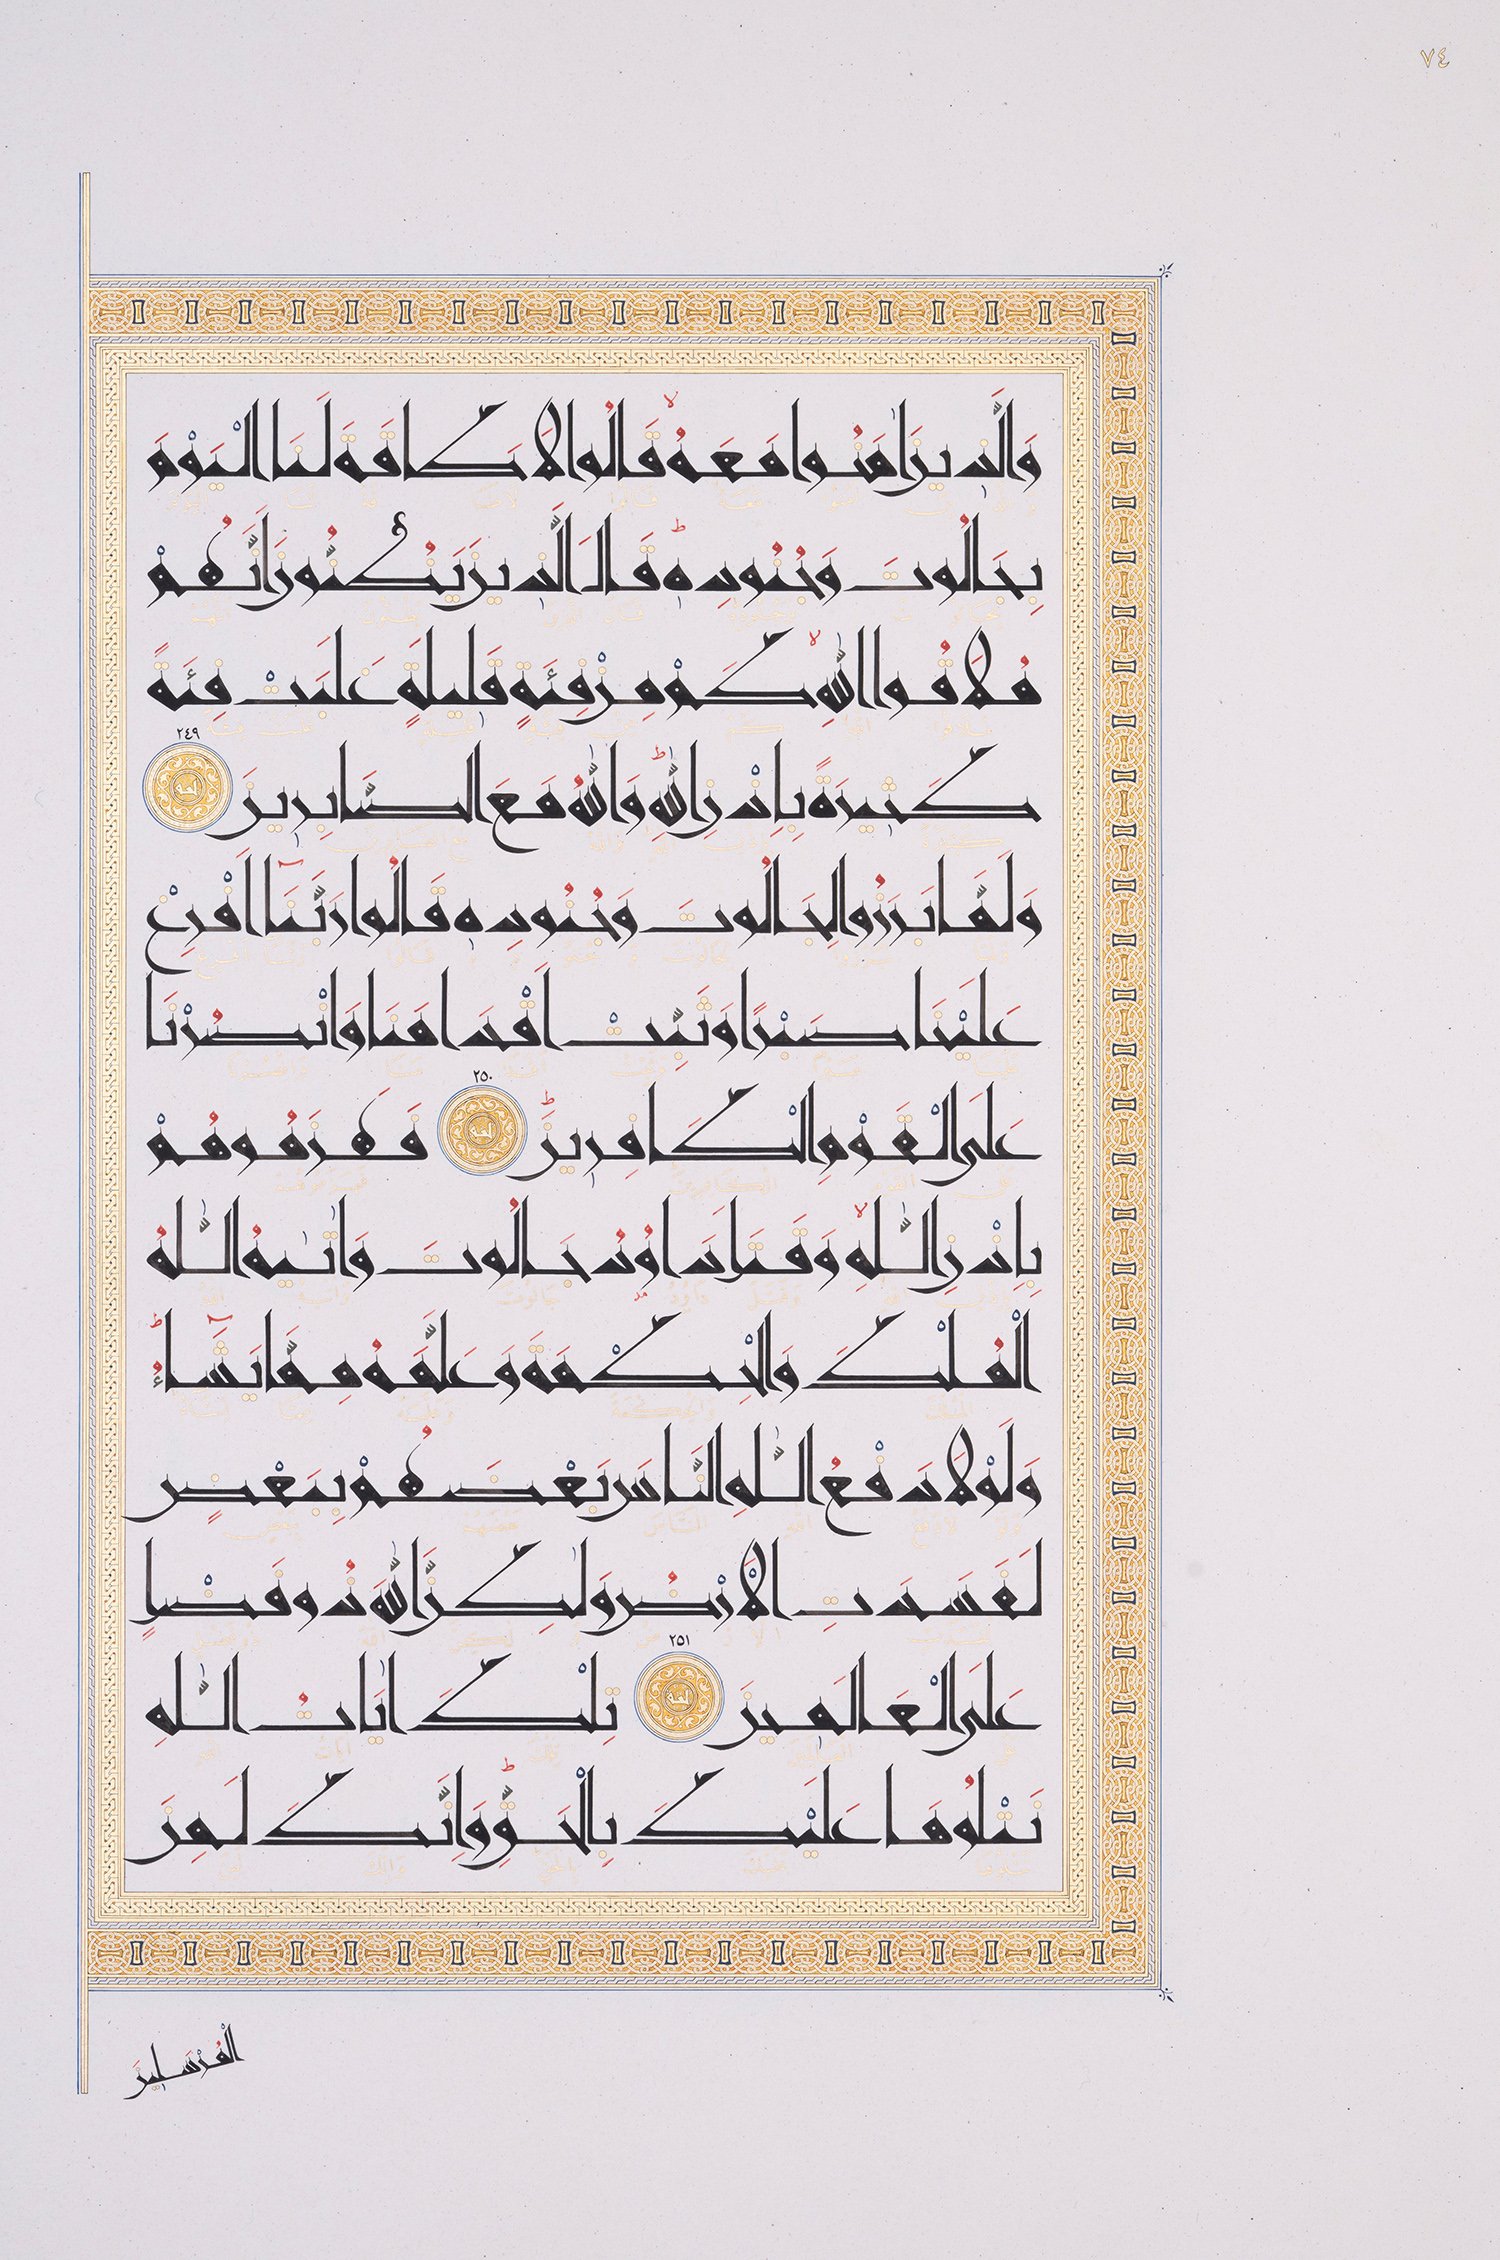 ٧٤
وَالَّذِينَ اٰمَنُوا مَعَهُ قَالُوا لَا طَاقَةَ لَنَا الْيَوْمَ
بِجَالُوتَ وَجُنُودِهِ قَالَ الَّذِينَ يَظُنُّونَ اَنَّهُمْ
مُلَاقُوا اللّٰهِ كَمْ مِنْ فِئَةٍ قَلِيلَةٍ غَلَبَتْ فِئَةً
كَثِيرَةً بِاِذْنِ اللّٰهِ وَاللّٰهُ مَعَ الصَّابِرِينَ ٢٤٩
وَلَمَّا بَرَزُوا لِجَالُوتَ وَجُنُودِهِ قَالُوا رَبَّنَٓا اَفْرِغْ
عَلَيْنَا صَبْرًا وَثَبِّتْ اَقْدَامَنَا وَانْصُرْنَا
عَلَى الْقَوْمِ الْكَافِرِينَ ٢٥٠ فَهَزَمُوهُمْ
بِاِذْنِ اللّٰهِ وَقَتَلَ دَاوُدُ جَالُوتَ وَاٰتٰيهُ اللّٰهُ
الْمُلْكَ وَالْحِكْمَةَ وَعَلَّمَهُ مِمَّا يَشَٓاءُ
وَلَوْلَا دَفْعُ اللّٰهِ النَّاسَ بَعْضَهُمْ بِبَعْضٍ
لَفَسَدَتِ الْاَرْضُ وَلٰكِنَّ اللّٰهَ ذُو فَضْلٍ
عَلَى الْعَالَمِينَ ٢٥١ تِلْكَ اٰيَاتُ اللّٰهِ
نَتْلُوهَا عَلَيْكَ بِالْحَقِّ وَاِنَّكَ لَمِنَ
الْمُرْسَلِينَ